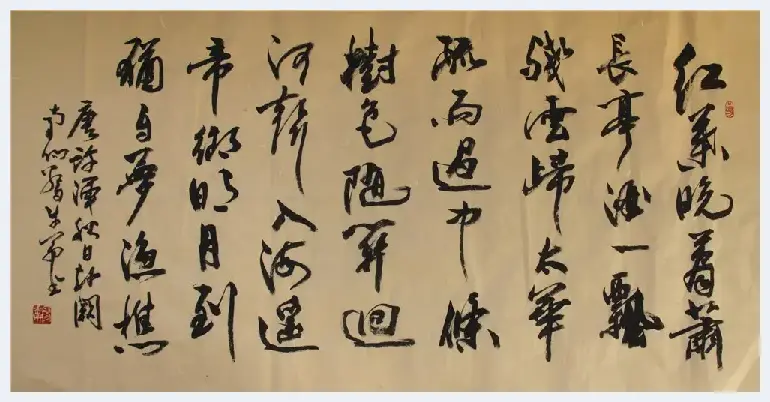 红葉晚蕭蕭
長亭酒一瓢
殘雲歸太華
疏雨過中條
樹色随關迴
河聲入海遥
帝鄉明月到
猶自夢漁樵
唐許渾秋日赴闕